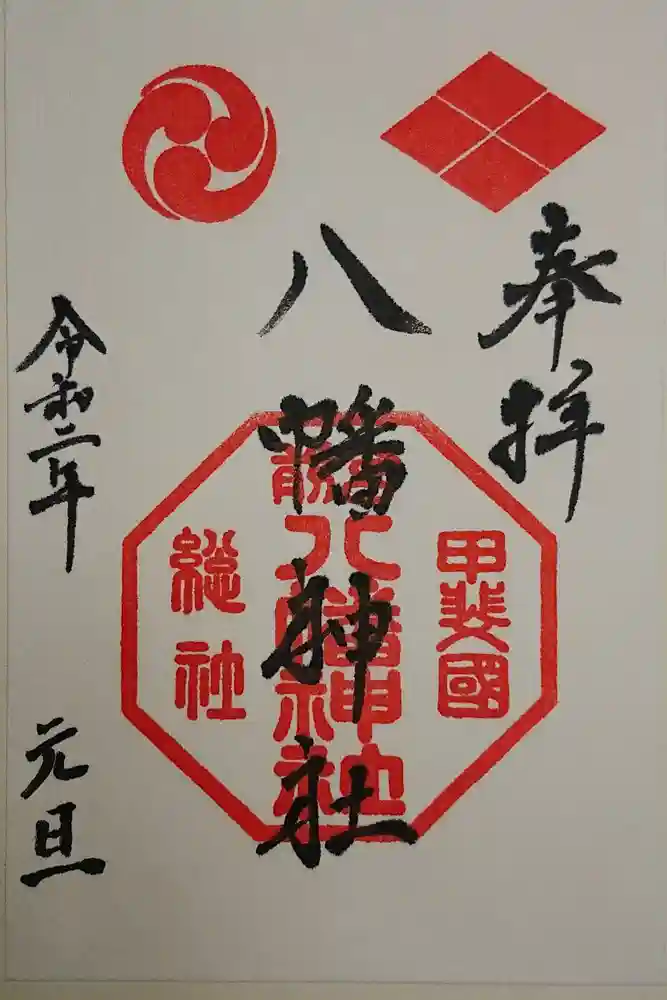 奉拝
八幡神社
甲斐國
総社
八幡神社
令和二年
元旦